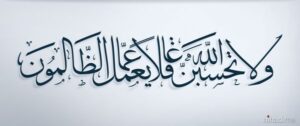 ولا تحسبنّ الله غفلا يعمّل الظّالمون